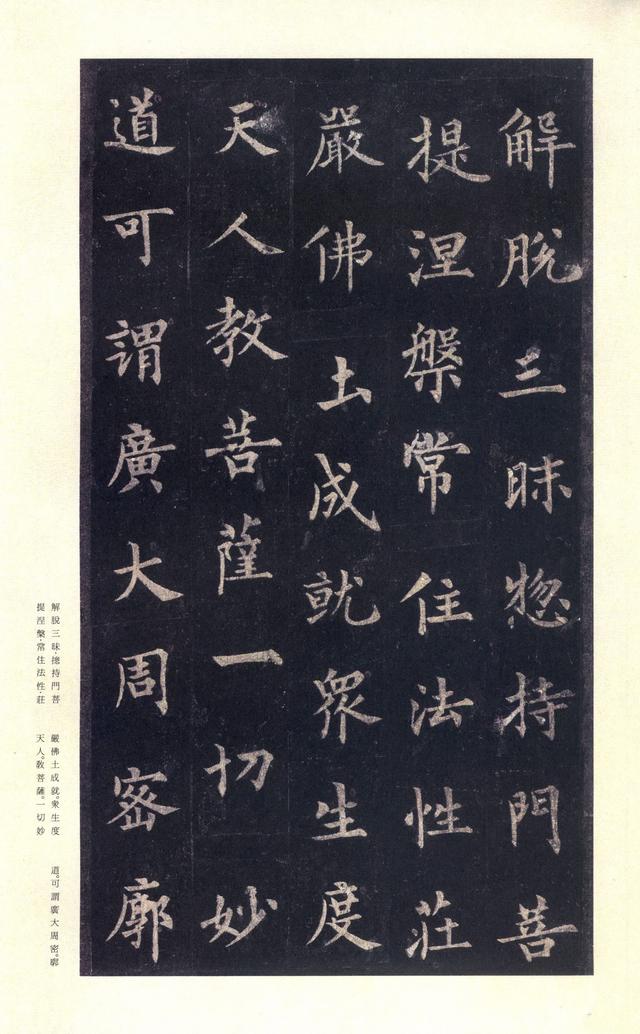 解脫三昧惣持門菩
提涅槃常住法性莊
嚴佛土成就衆生度
天人教菩薩一切妙
道可謂廣大周密廓
解脫三昧·摠持門菩
提涅槃·常住法性·莊
嚴佛土成就。衆生度
天人。敎菩薩。一切妙
道。可謂廣大周密。廓